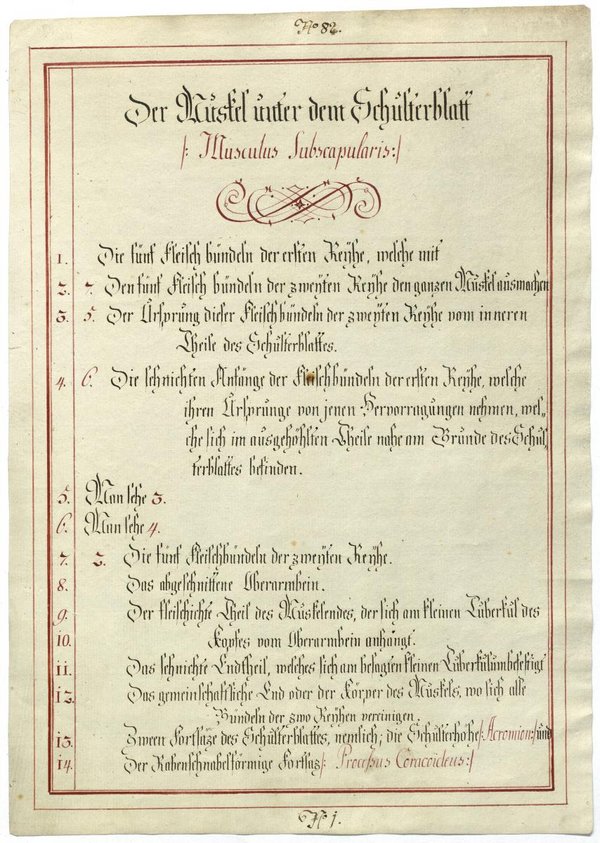 No 82.
Der Muskel unter dem Schulterblatt
/: Musculus Subscapularis:/
1. Die fünf Fleisch bündeln der ersten Reyhe, welche mit
2. 7. Den fünf Fleisch bündeln der zweyten Reyhe den ganzen Muskel ausmachen
3. 5. Der Ursprung dieser Fleischbündeln der zweyten Reyhe vom inneren
Theile des Schulterblattes.
4. 6. Die sehnichten Anfänge der Fleischbündeln der ersten Reyhe, welche
ihren Ursprunge von jenen Hervorragungen nehmen, wel-
che sich im ausgehöhlten Theile nahe am Grunde des Schul
terblattes befinden.
5. Man sehe 3.
6. Man sehe 4.
7. 2. Die fünf Fleischbündeln der zweyten Reyhe.
8. Das abgeschnittene Oberarmbein.
9. Der fleischichte Theil des Muskelendes, der sich am kleinen Tüberkül des
10. Kopfes vom Oberarmbein anhängt.
11. Das sehnichte Endtheil, welches sich am besagten kleinen Tüberkülum befestigt
12. Das gemeinschaftliche End oder der Körper des Muskels, wo sich alle
Bündeln der zwo Reyhen vereinigen.
13. Zween Fortsäze des Schulterblattes, nemlich; die Schulterhöhe /:Acromion:/ und
14. Der Rabenschnabelförmige Fortsaz /: Processus Coracoideus:/
No 1.